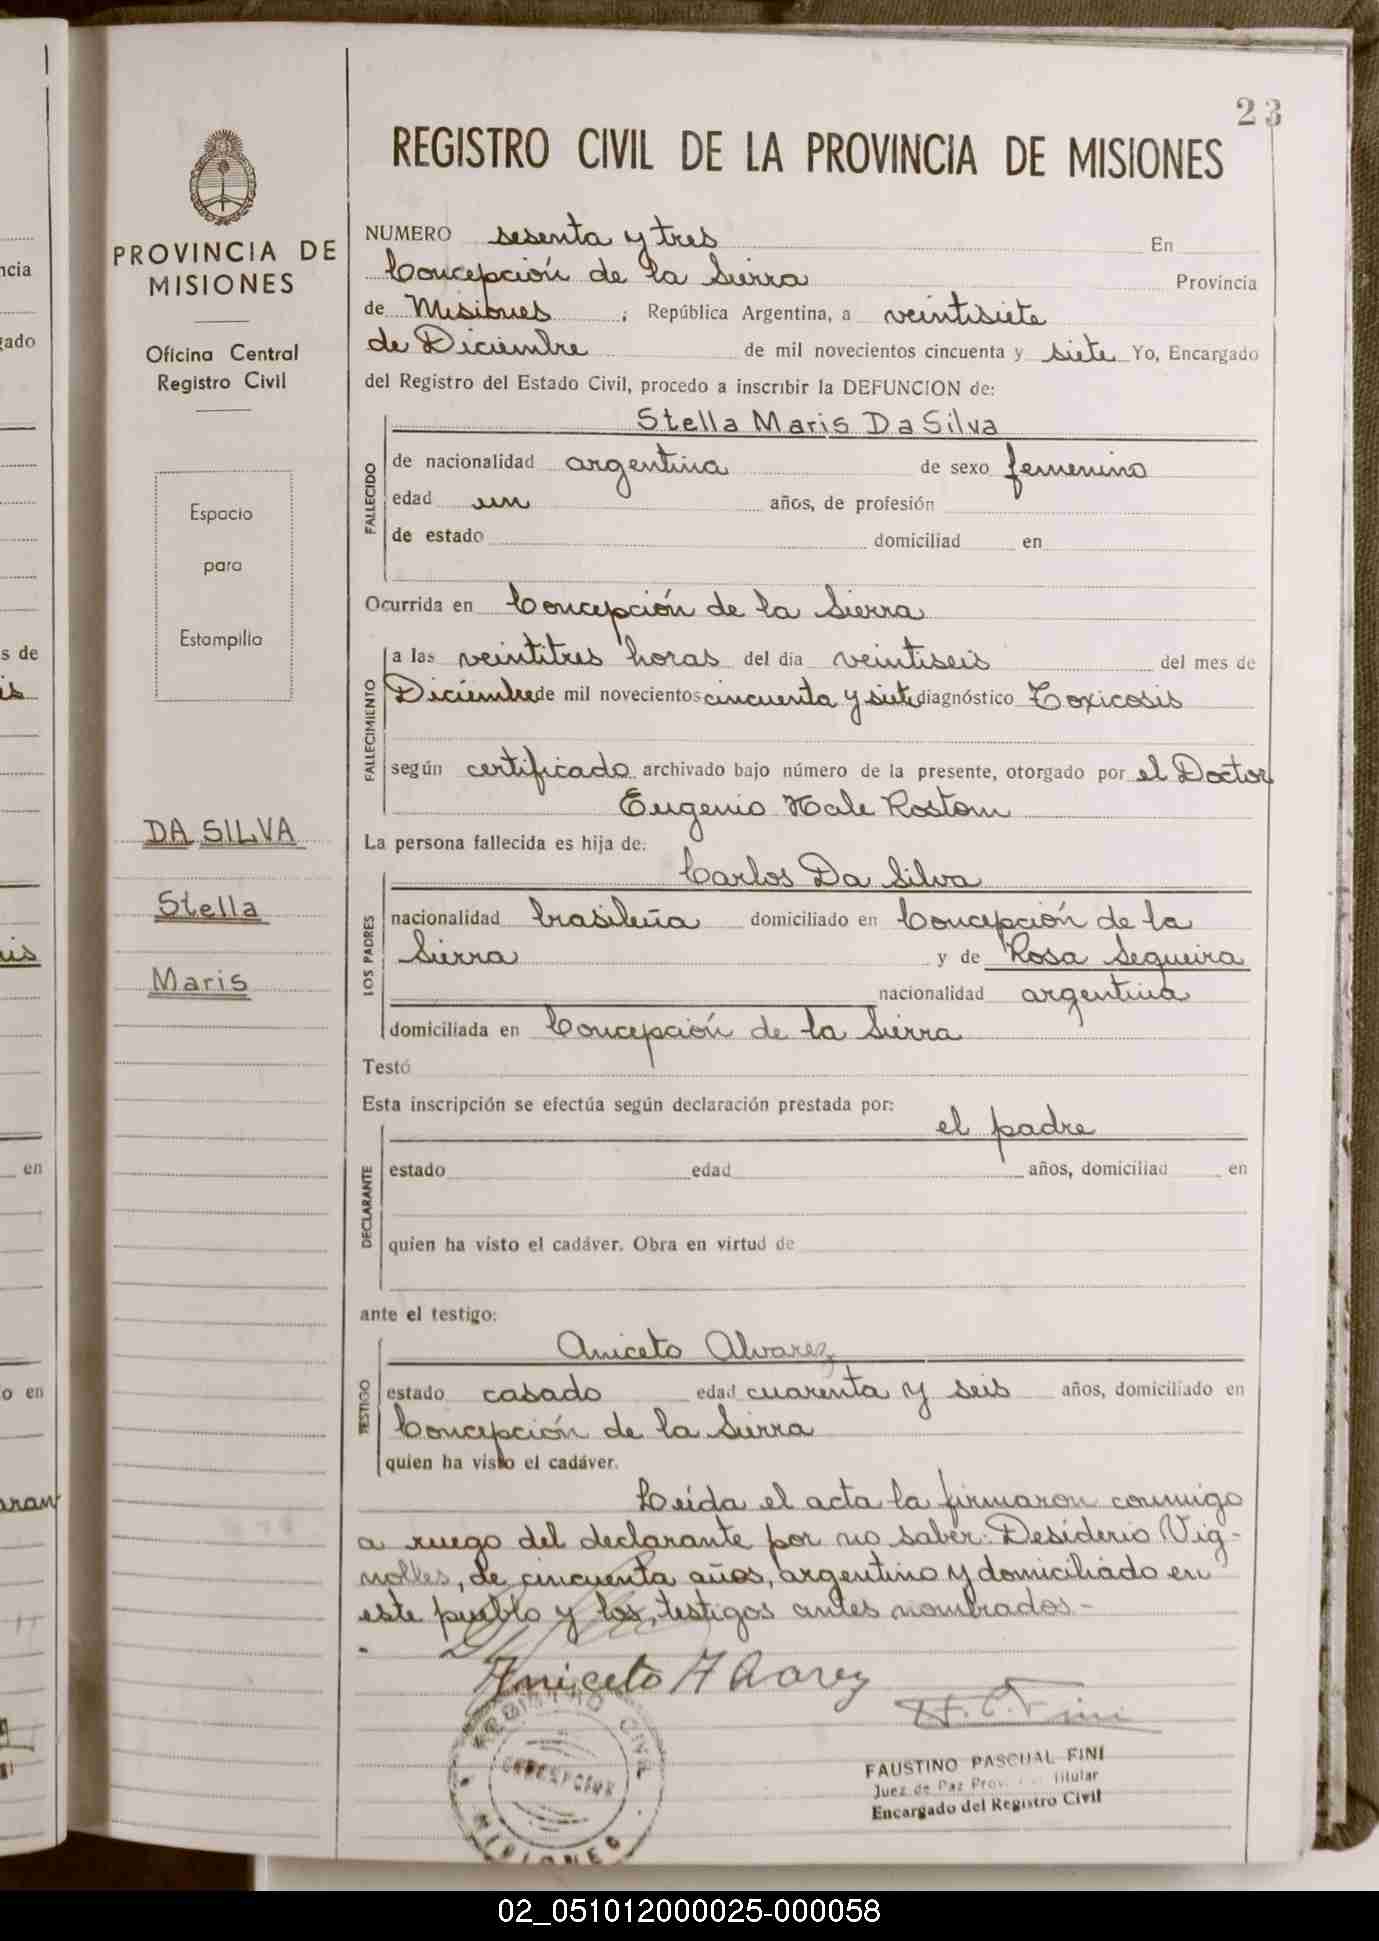 23
REGISTRO CIVIL DE LA PROVINCIA DE MISIONES
PROVINCIA DE
MISIONES
Oficina Central
Registro Civil
Espacio
para
Estampilla
DA SILVA
Stella
Maris
NUMERO sesenta y tres En
Concepción de la Sierra Provincia
de Misiones ; República Argentina, a veintisiete
de Diciembre de mil novecientos cincuenta y siete Yo, Encargado
del Registro del Estado Civil, procedo a inscribir la DEFUNCION de:
Stella Maris Da Silva
FALLECIDO
de nacionalidad argentina de sexo femenino
edad un años, de profesión
de estado domiciliad en
Ocurrida en Concepción de la Sierra
FALLECIMIENTO
a las veintitres horas del día veintiseis del mes de
Diciembre de mil novecientos cincuenta y siete diagnóstico Toxicosis
según certificado archivado bajo número de la presente, otorgado por el Doctor
Eugenio Hale Rostom
La persona fallecida es hija de:
Carlos Da Silva
LOS PADRES
nacionalidad brasileña domiciliado en Concepción de la
Sierra y de Rosa Sequeira
nacionalidad argentina
domiciliada en Concepción de la Sierra
Testó
Esta inscripción se efectúa según declaración prestada por:
el padre
DECLARANTE
estado edad años, domiciliad en
quien ha visto el cadáver. Obra en virtud de
ante el testigo:
Aniceto Alvarez
TESTIGO
estado casado edad cuarenta y seis años, domiciliado en
Concepción de la Sierra
quien ha visto el cadáver.
Leída el acta la firmaron conmigo
a ruego del declarante por no saber: Desiderio Vig-
nolles, de cincuenta años, argentino y domiciliado en
este pueblo y los, testigos antes nombrados-
Aniceto Alvarez
REGISTRO CIVIL
CONCEPCION
MISIONES
FAUSTINO PASCUAL FINI
Juez de Paz Prov. Titular
Encargado del Registro Civil
02_051012000025-000058